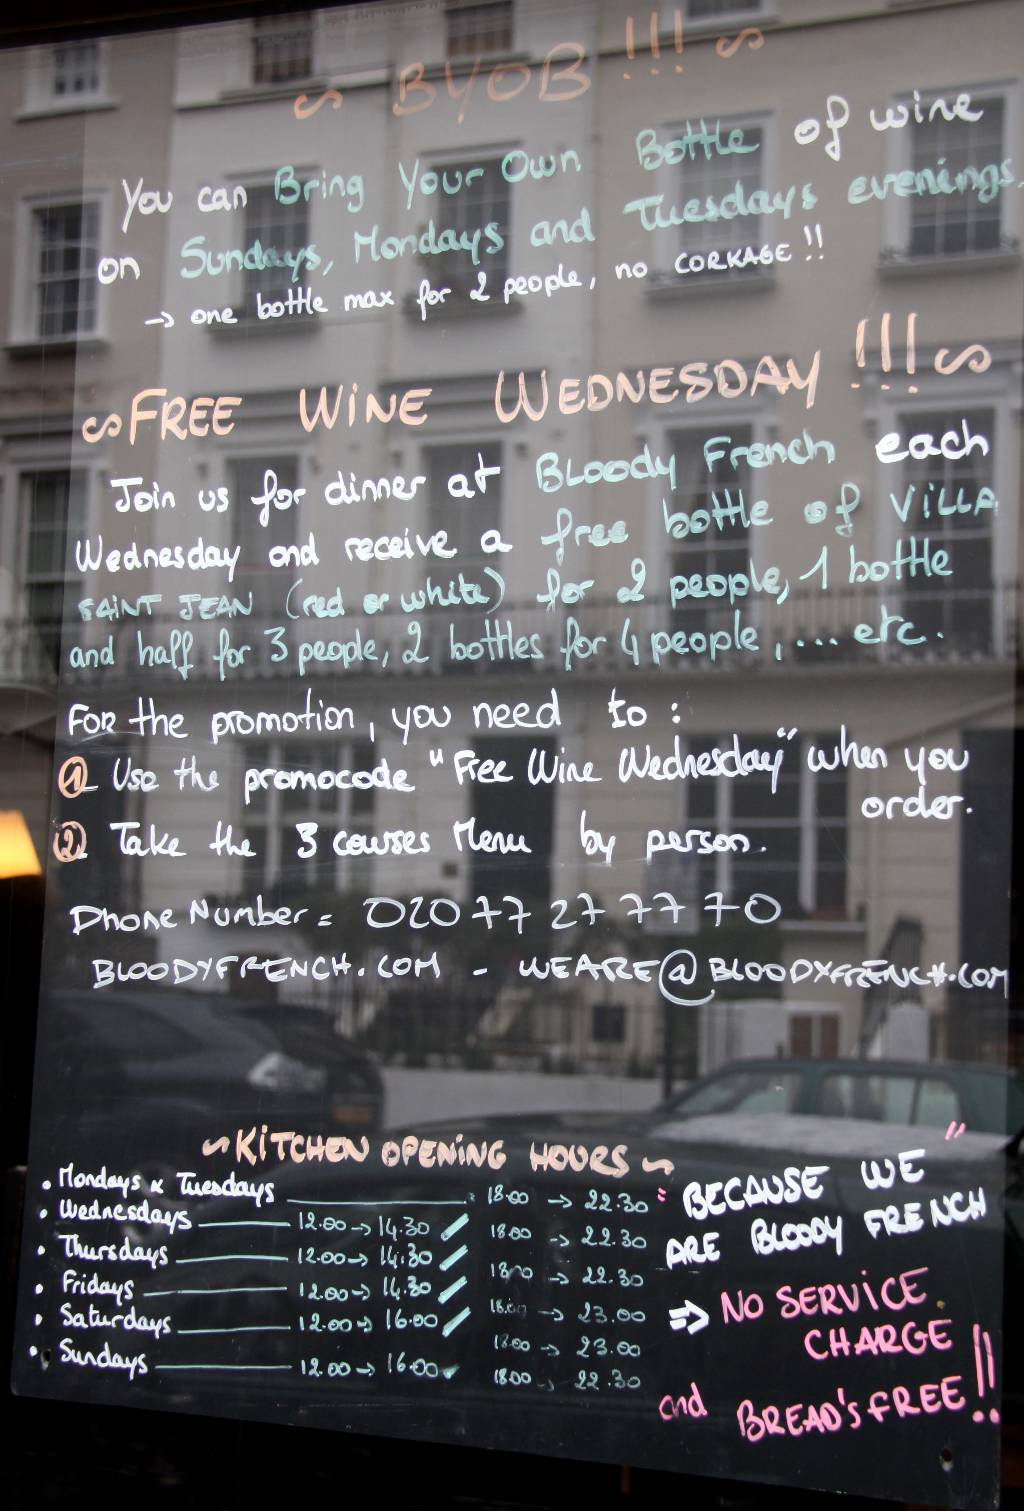 ~ BYOB !!! ~
You can Bring Your Own Bottle of wine
on Sundays, Mondays and Tuesdays evenings.
→ one bottle max for 2 people, no CORKAGE !!
~ FREE WINE WEDNESDAY !!! ~
Join us for dinner at Bloody French each
Wednesday and receive a free bottle of VILLA
SAINT JEAN (red or white) for 2 people, 1 bottle
and half for 3 people, 2 bottles for 4 people, .... etc.
For the promotion, you need to :
① Use the promocode "Free Wine Wednesday" when you
order.
② Take the 3 courses Menu by person.
Phone Number = 020 77 27 77 70
BLOODYFRENCH.COM - WEARE@BLOODYFRENCH.COM
~ KITCHEN OPENING HOURS ~
• Mondays & Tuesdays 18.00 → 22.30
• Wednesdays 12.00 → 14.30 / 18.00 → 22.30
• Thursdays 12.00 → 14.30 / 18.00 → 22.30
• Fridays 12.00 → 14.30 / 18.00 → 23.00
• Saturdays 12.00 → 16.00 / 18.00 → 23.00
• Sundays 12.00 → 16.00 / 18.00 → 22.30
"BECAUSE WE"
ARE BLOODY FRENCH
⇒ NO SERVICE
CHARGE
and BREAD'S FREE !!